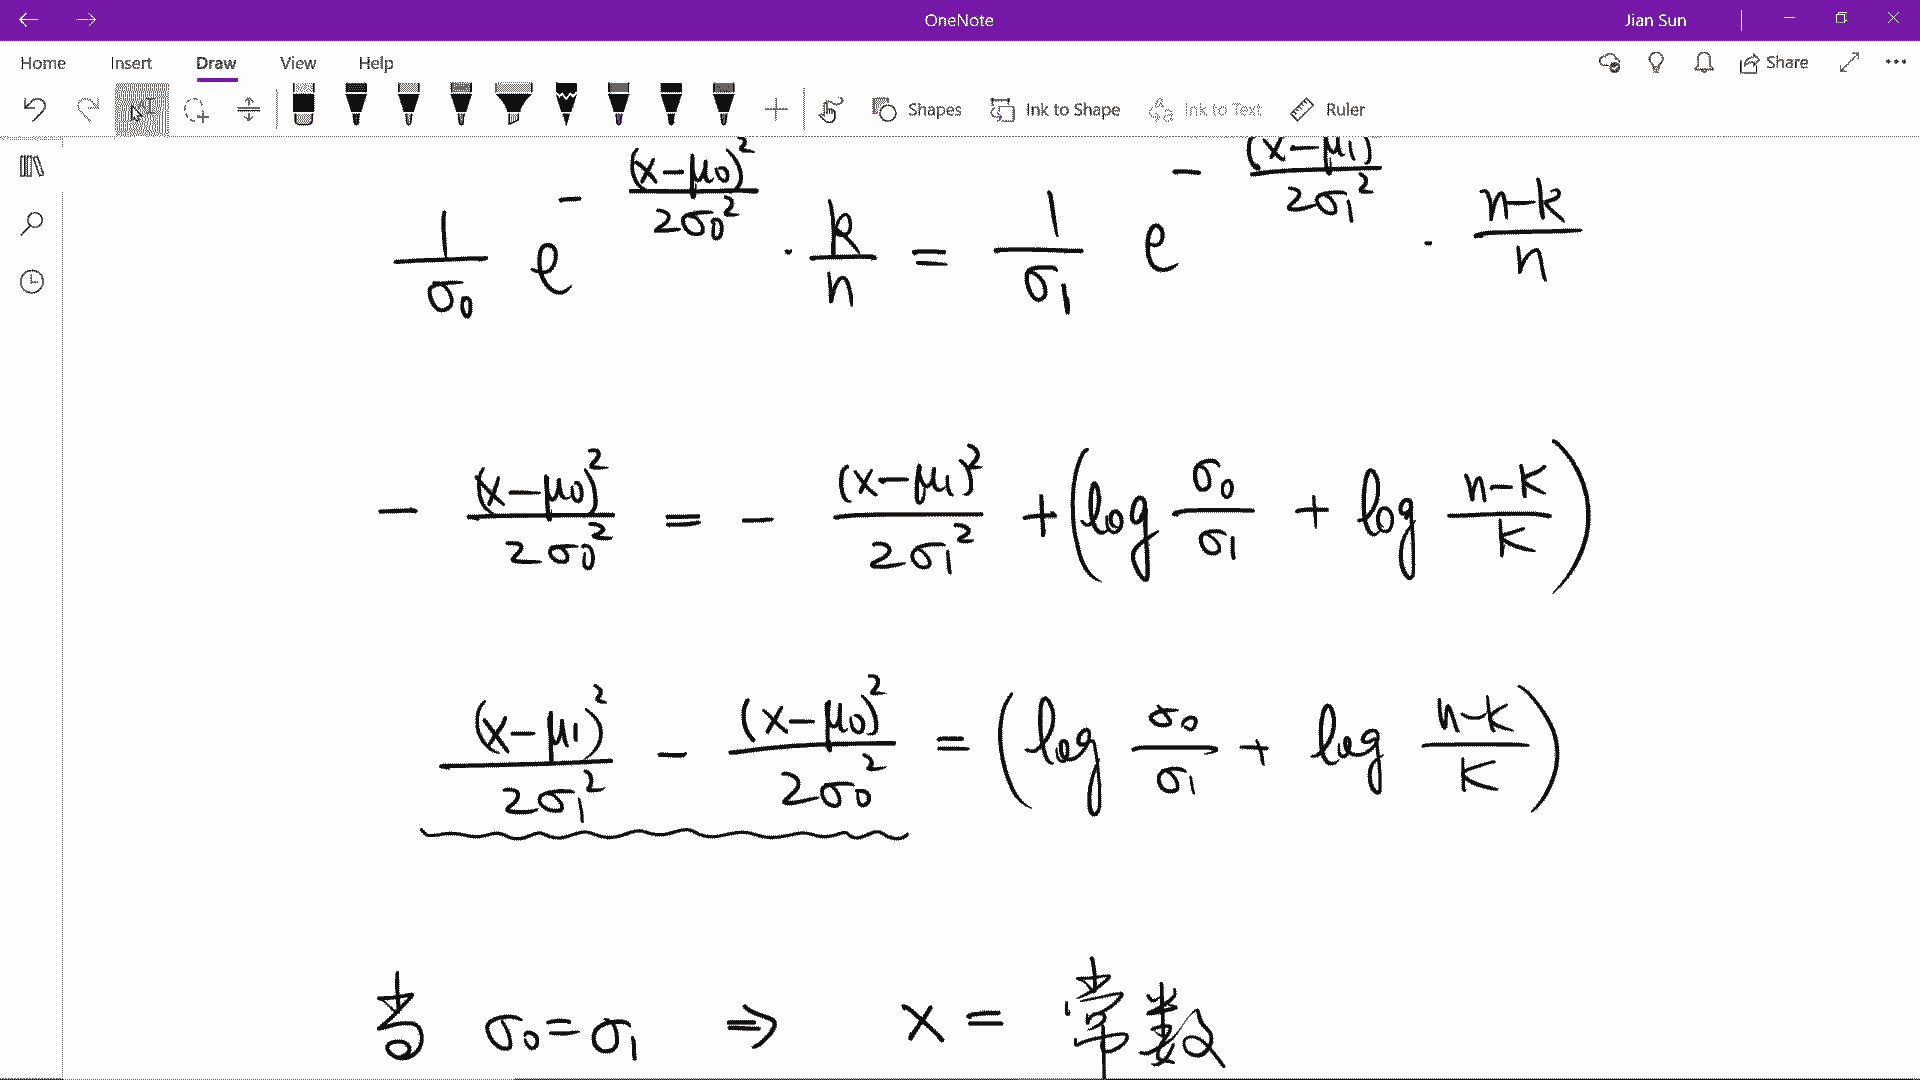 OneNote
Jian Sun
Home Insert Draw View Help
Share
Shapes Ink to Shape Ink to Text Ruler
1/σ₀ e^(-(x-μ₀)²/2σ₀²) · k/n = 1/σ₁ e^(-(x-μ₁)/2σ₁²) · n-k/n
- (x-μ₀)²/2σ₀² = - (x-μ₁)²/2σ₁² + (log σ₀/σ₁ + log n-k/k)
(x-μ₁)²/2σ₁² - (x-μ₀)²/2σ₀² = (log σ₀/σ₁ + log n-k/k)
当 σ₀=σ₁ ⇒ x = 常数